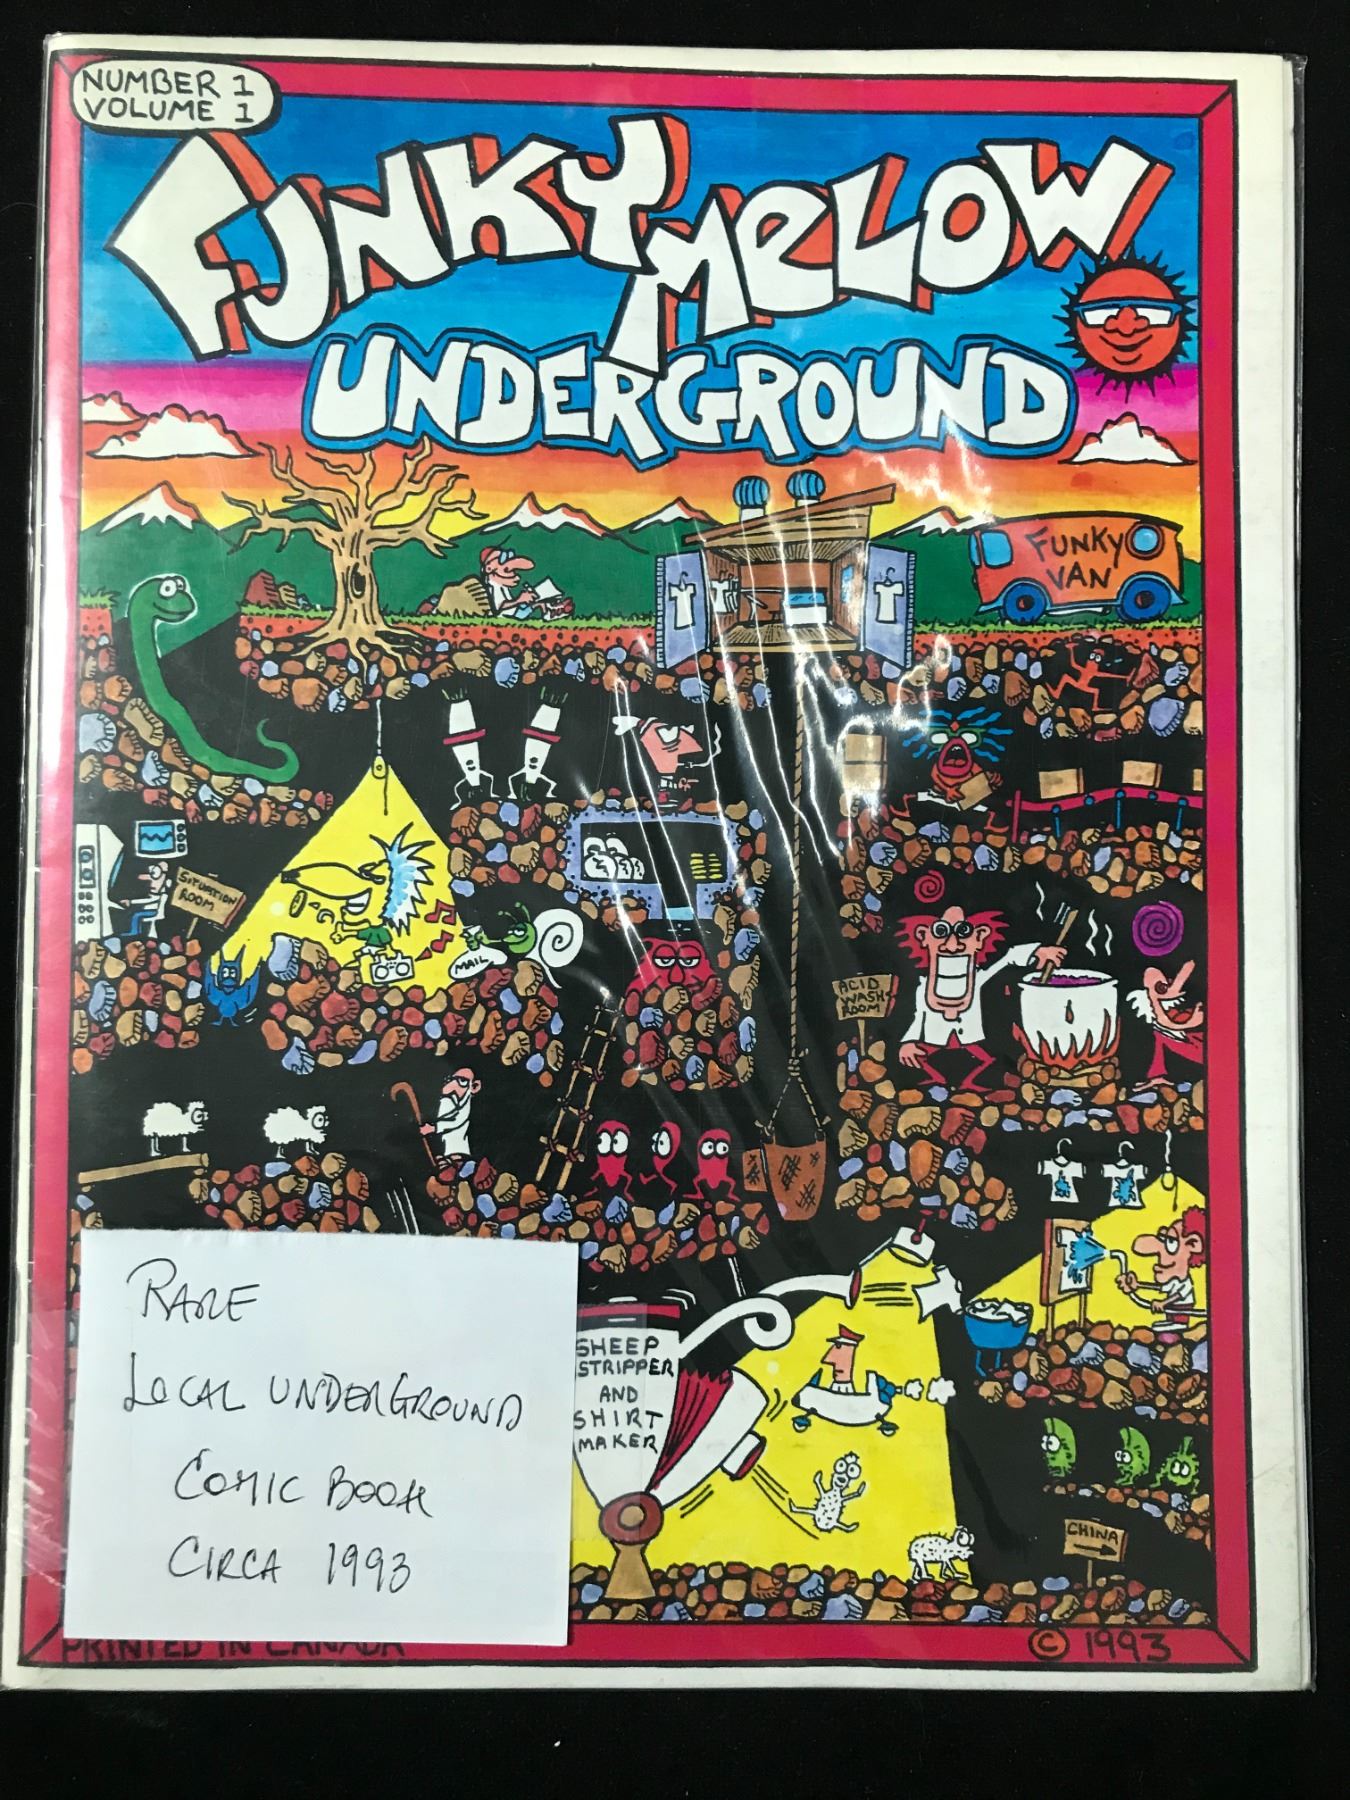 NUMBER 1
VOLUME 1
FUNKY MELOW
UNDERGROUND
FUNKY
VAN
SITUATION
ROOM
MAIL
ACID
WASH-
ROOM
SHEEP
STRIPPER
AND
SHIRT
MAKER
CHINA
RARE
LOCAL UNDERGROUND
COMIC BOOK
CIRCA 1993
PRINTED IN CANADA
© 1993